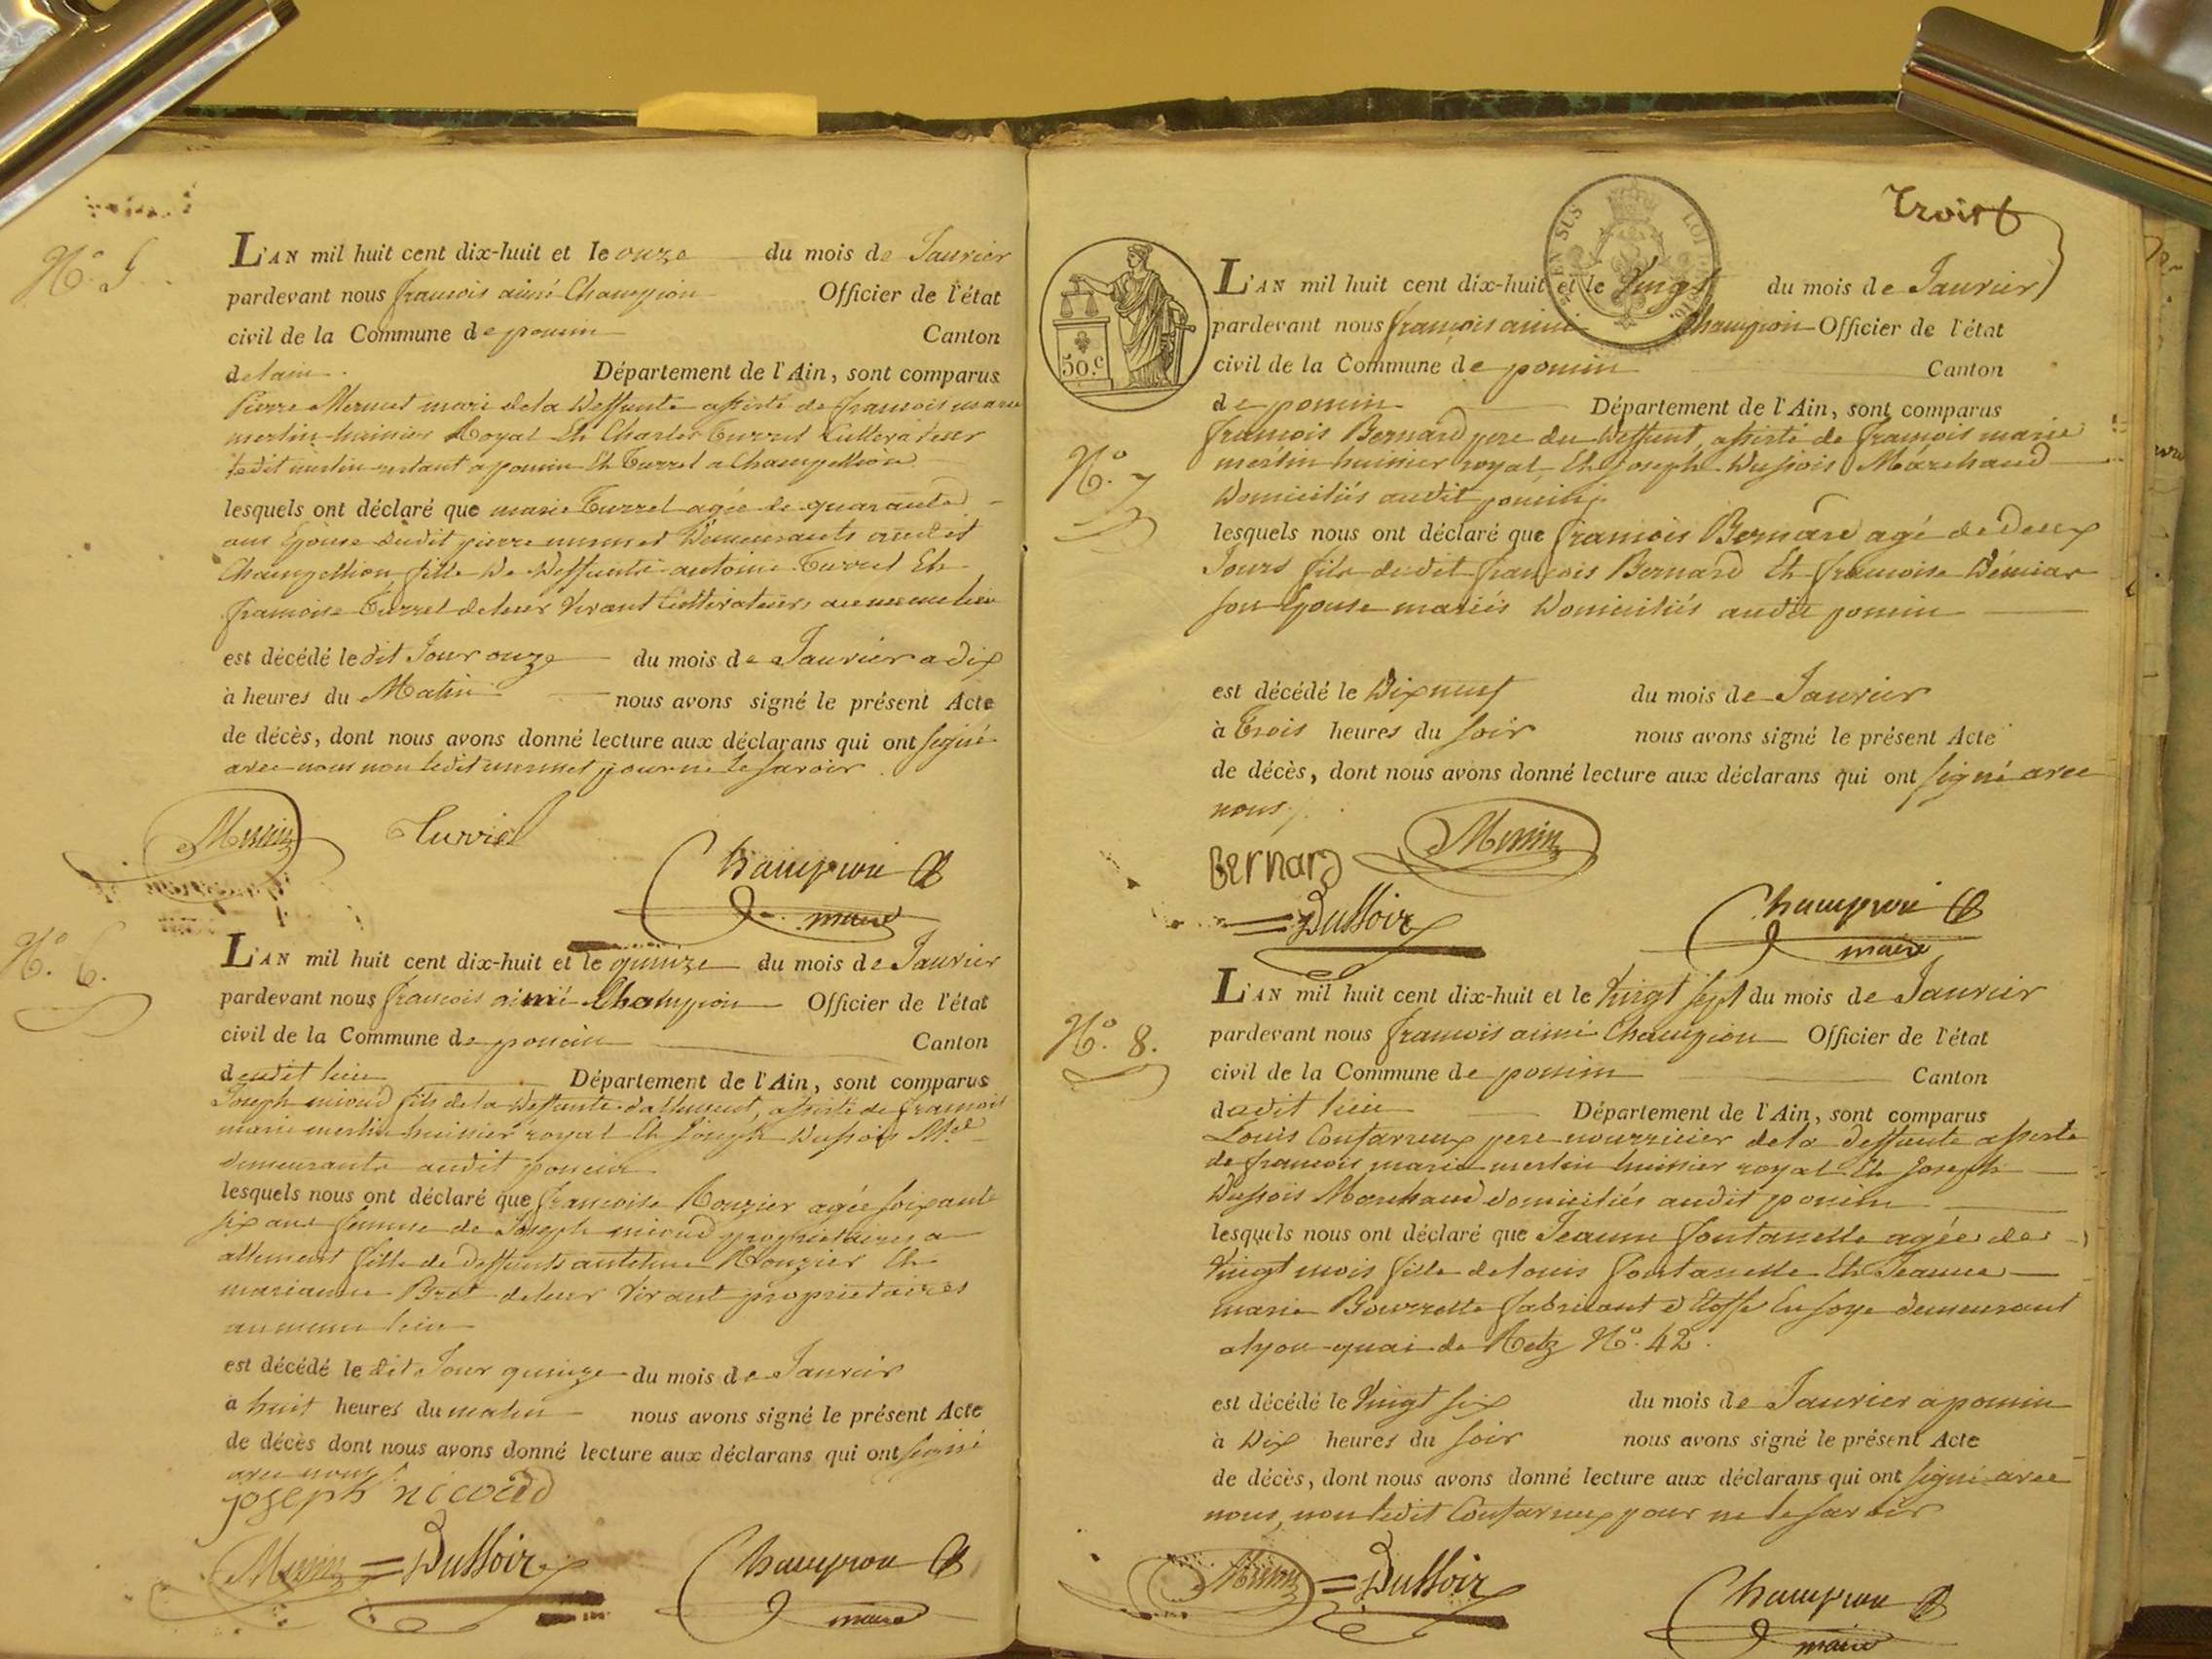 N.° 5
L'AN mil huit cent dix-huit et le onze du mois de Janvier
pardevant nous françois aimé Champion Officier de l'état
civil de la Commune de poncin Canton
de lain. Département de l'Ain, sont comparus
Pierre Mermet mari dela Deffunte assisté de françois marie
merlin huissier Royal Et Charles Turrel Cultivateur
ledit merlin restant a poncin Et Turrel a Champellion
lesquels ont déclaré que marie Turrel agée de quarante
ans Epouse dudit pierre mermet Demeurants audit
Champellion fille De Deffunts antoine Turrel Et
francoise Turrel deleur Vivant Cultivateurs au meme lieu
est décédé le dit Jour onze du mois de Janvier a dix
à heures du Matin nous avons signé le présent Acte
de décès, dont nous avons donné lecture aux déclarans qui ont signé
avec nous non ledit mermet pour ne le savoir
Merlin Turrel
Champion
maire
N.° 6.
L'AN mil huit cent dix-huit et le quinze du mois de Janvier
pardevant nous françois aimé Champion Officier de l'état
civil de la Commune de poncin Canton
dudit lieu Département de l'Ain, sont comparus
Joseph fils dela Deffunte d'allement, assisté de françois
marie merlin huissier royal Et Joseph Dussoir M.d
demeurants audit poncin
lesquels nous ont déclaré que francoise Rouzier agée soixante
six ans femme de Joseph proprietaires a
allement fille de Deffunts Rouzier Et
marianne Bret deleur Vivant proprietaires
au meme lieu
est décédé le dit Jour quinze du mois de Janvier
à huit heures du matin nous avons signé le présent Acte
de décès dont nous avons donné lecture aux déclarans qui ont signé
avec nous
joseph nicoud
Merlin = Dussoir Champion
maire
trois
EN SUS LOI
50.c
N.° 7
L'AN mil huit cent dix-huit et le Vingt du mois de Janvier
pardevant nous françois aimé Champion Officier de l'état
civil de la Commune de poncin Canton
de poncin Département de l'Ain, sont comparus
françois Bernard pere du Deffunt, assisté de françois marie
merlin huissier royal Et Joseph Dussoir Marchand
Domiciliés audit poncin
lesquels nous ont déclaré que françois Bernard agé de Deux
Jours fils dudit françois Bernard Et francoise
son Epouse mariés Domiciliés audit poncin
est décédé le Dix neuf du mois de Janvier
à Trois heures du soir nous avons signé le présent Acte
de décès, dont nous avons donné lecture aux déclarans qui ont signé avec
nous
Bernard Merlin
= Dussoir Champion
maire
N.° 8.
L'AN mil huit cent dix-huit et le Vingt sept du mois de Janvier
pardevant nous françois aimé Champion Officier de l'état
civil de la Commune de poncin Canton
dudit lieu Département de l'Ain, sont comparus
Louis pere nourricier dela deffunte assisté
de françois marie merlin huissier royal Et Joseph
Dussoir Marchand domiciliés audit poncin
lesquels nous ont déclaré que Jeanne fontanelle agée de
Vingt mois fille de louis fontanelle Et Jeanne
marie fabricant d'Etoffe En soye demeurant
a lyon quai de Retz N.° 42.
est décédé le Vingt six du mois de Janvier a poncin
à Dix heures du soir nous avons signé le présent Acte
de décès, dont nous avons donné lecture aux déclarans qui ont signé avec
nous, non ledit pour ne le savoir
Merlin = Dussoir Champion
maire